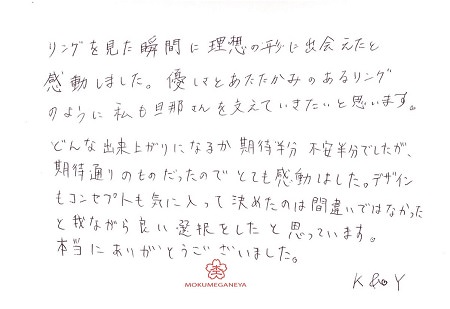 リングを見た瞬間に理想の形に出会えたと
感動しました。優しさとあたたかみのあるリング
のように私も旦那さんを支えていきたいと思います。
どんな出来上がりになるか期待半分 不安半分でしたが、
期待通りのものだったのでとても感動しました。デザイン
もコンセプトも気に入って決めたのは間違いではなかった
と我ながら良い選択をしたと思っています。
本当にありがとうございました。
MOKUMEGANEYA
K & Y